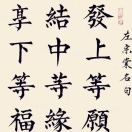 發上等願
結中等緣
享下等福
左宗棠名句